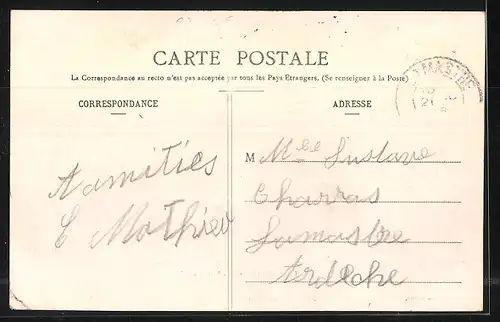 CARTE POSTALE
La Correspondance au recto n'est pas acceptée par tous les Pays Etrangers. (Se renseigner à la Poste)
CORRESPONDANCE
ADRESSE
LAMASTRE
21
M Mlle Gustave
Aamitiés
Charras
E Mathieu
Lamastre
Ardèche